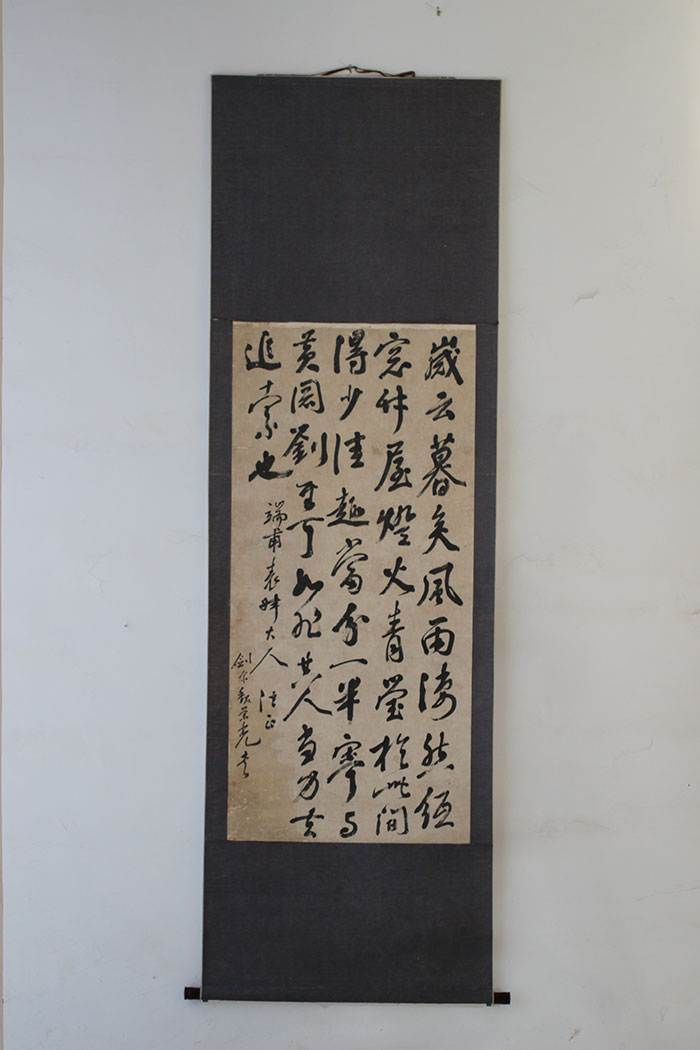 歲云暮矣風雨淒然紙
窓竹屋燈火青熒於此間
得少佳趣當分一半寄与
黃岡劉至可如非其人當力去
追索也
端甫表叔大人法正